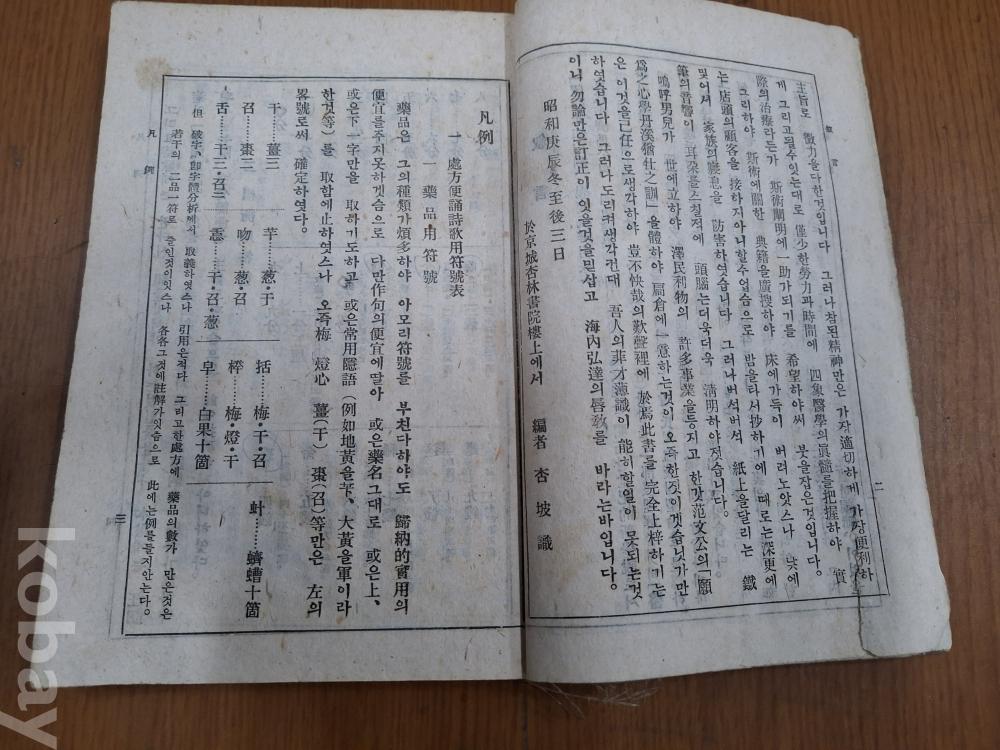 主旨로 微力을다한것입니다 그러나참된精神만은 가장適切하게 가장便利하
게 그리고될수잇는대로 僅少한勞力과時間에 四象醫學의眞髓를把握하야 實
際의治療라든가 斯術闡明에一助가되기를 希望하야써 붓을잡은것입니다。
그리하야 斯術에關한 典籍을廣搜하야 床에가득이 버려노앗스나 낮에
는店頭의顧客을 接하지아니할수업슴으로 밤을타서抄하기에 때로는深更에
및어서 家族의寢息을 防害하엿습니다 그러나버석버석 紙上을달리는 鐵
筆의音響이 耳朶를스칠적에 頭腦는더욱더욱 淸明하야젓습니다。
嗚呼男兒가 世에立하야 澤民利物의 許多事業을등지고 한갓范文公의「願
爲之心學丹溪猶仕之訓」을體하야 扁倉에一意하는것이 오즉한것이겟습닛가만
은 이것을己任으로생각하야 豈不快哉의歎聲裡에 於焉此書를 完全上梓하기는
하엿습니다 그러나도리켜생각건대 吾人의菲才薄識이 能히할일이 못되는것
이니 勿論만은訂正이 잇을것을밋삽고 海內弘達의唇敎를 바라는바입니다。
昭和庚辰冬至後三日
於京城杏林書院樓上에서 編者 杏坡識
二
凡例
一 處方便誦詩歌用符號表
一 藥品用符號
藥品은 그의種類가煩多하야 아모리符號를 부친다하야도 歸納的實用의
便宜를주지못하겟슴으로 다만作句의便宜에딸아 或은藥名그대로 或은上、
或은下一字만을 取하기도하고 或은常用隱語(例如地黃을芐、大黃을軍이라
한것等)를 取함에止하엿스나 오즉梅 燈心 薑(干) 棗(召)等만은 左의
畧號로써 確定하엿다。
干……薑三 芋……葱·干 括……梅·干·召 虲……蠐螬十箇
召……棗二 吻……葱·召 榉……梅·燈·干
舌……干三·召二 㤅……干·召·葱 皁……白果十箇
但 破字、卽字體分析에서 取義하엿스나 引用은적다 그리고한處方에 藥品의數가 만은것은
若干의 二品一符로 줄인것이잇스나 各各그것에註解가잇슴으로 此에는例를들지안는다。
凡例
三
kobay